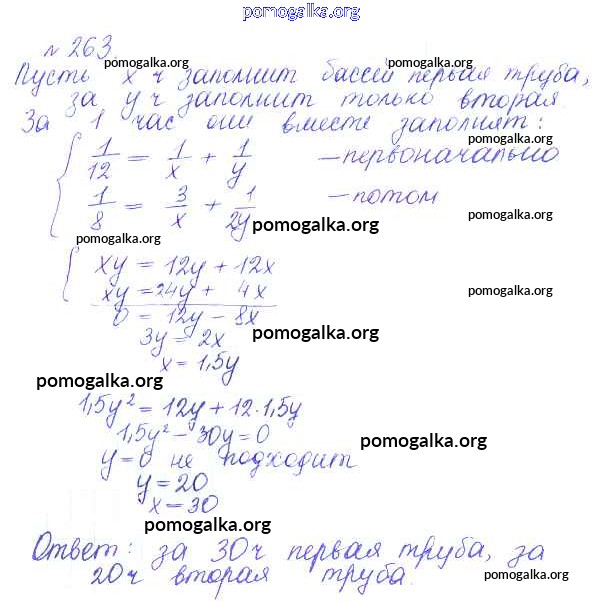 pomogalka.org
№ 263.
pomogalka.org pomogalka.org
Пусть x ч заполнит бассей первая труба,
за y ч заполнит только вторая.
За 1 час они вместе заполнят:
pomogalka.org
1/12 = 1/x + 1/y — первоначально
1/8 = 3/x + 1/2y — потом
pomogalka.org
pomogalka.org
pomogalka.org
xy = 12y + 12x
xy = 24y + 4x
pomogalka.org
0 = 12y - 8x
3y = 2x
pomogalka.org
x = 1,5y
pomogalka.org
1,5y² = 12y + 12·1,5y
1,5y² - 30y = 0
pomogalka.org
y = 0 не подходит
y = 20
x = 30
pomogalka.org
Ответ: за 30ч первая труба, за
20ч вторая труба.
pomogalka.org